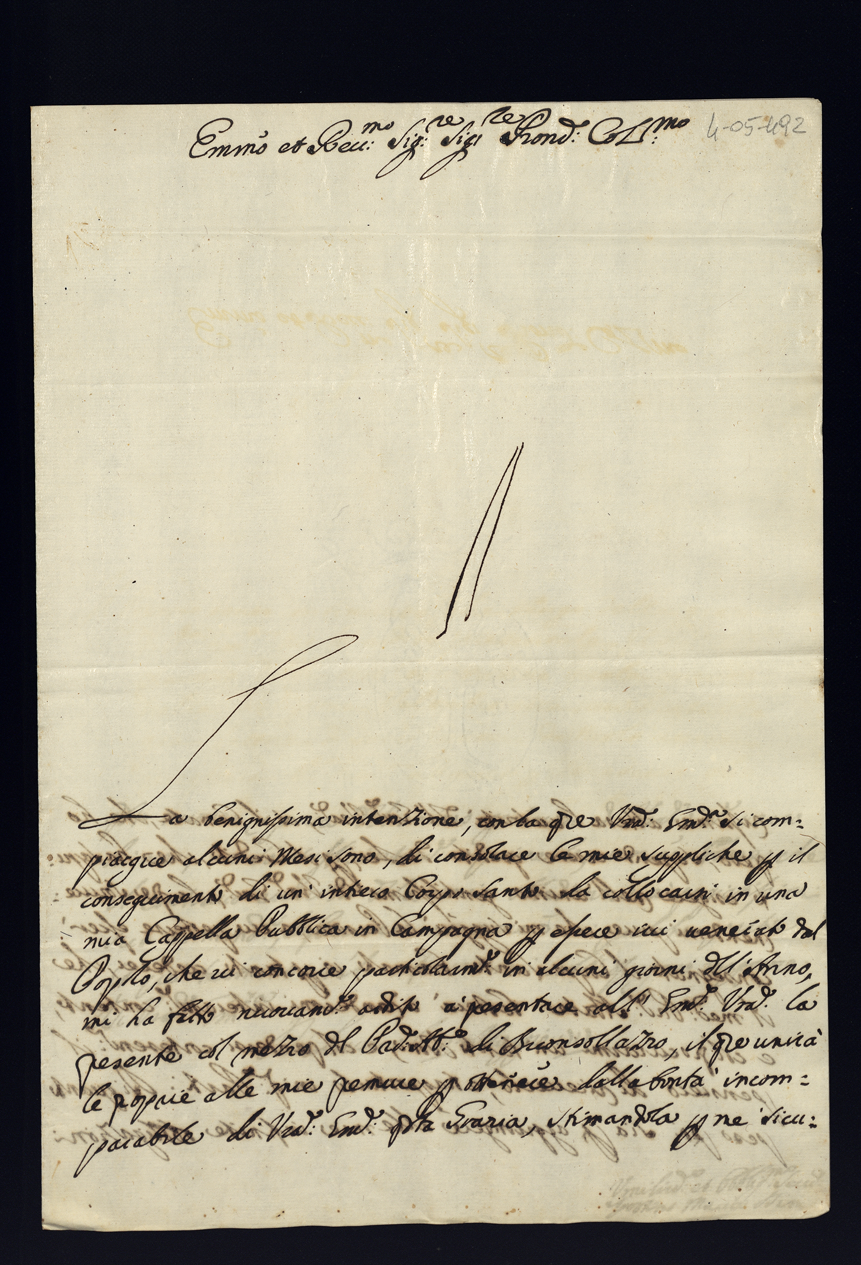 Emiñо et Reu:mo Sig:re Sig:re Prond: Col:mo
4-05-492
La benignissima intenzione, con la qle Vrã: Emã: si com=
piacque alcuni Mesi sono, di consolare le mie suppliche p il
conseguimento di un' intiero Corpo Santo da collocarsi in una
mia Cappella Pubblica in Campagna p essere iui uenerato dal
Popolo, che ui concorre particolarmte in alcuni giorni dell' Anno,
mi ha fatto nuouamte adito a presentare all' Emã: Vrã: la
presente col mezzo del Pad: Abb:e di Buonsollazzo, il qle unirà
le proprie alle mie premure p ottenere dalla bontà incom=
parabile di Vrã: Emã: qsta Grazia, stimandola p me sicu=